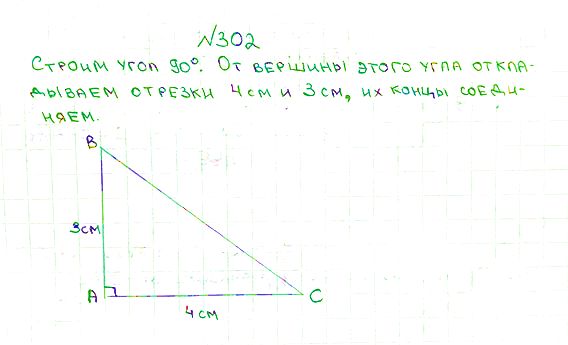 №302
Строим угол 90°. От вершины этого угла откла-
дываем отрезки 4 см и 3 см, их концы соеди-
няем.
B
3 см
A
C
4 см